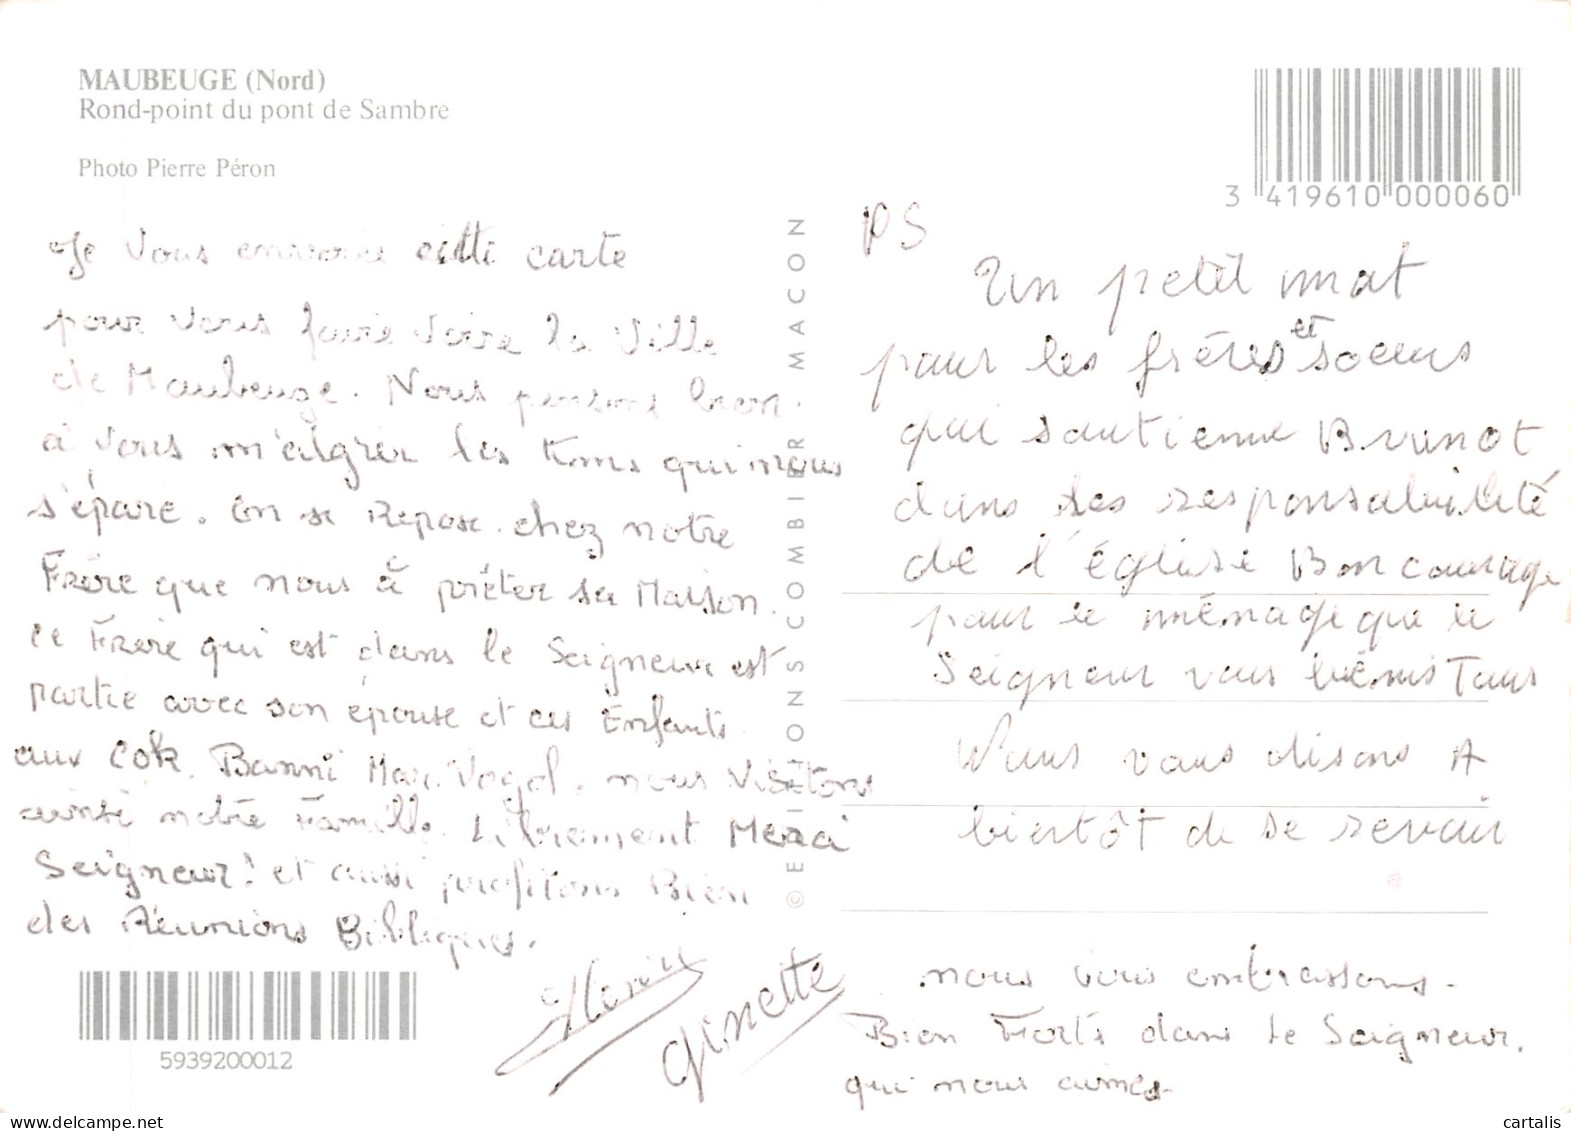 MAUBEUGE (Nord)
Rond-point du pont de Sambre
Photo Pierre Péron
3 419610 000060
Je Vous envoie cette carte
pour vous faire voire la Ville
de Maubeuge. Nous pensons bien
à vous m'algrer les tems qui nous
s'épare. On se Repose chez notre
Frère que nous à prêter sa Maison.
ce Frère qui est dans le Seigneur est
partie avec son épouse et ces Enfants
aux
nous Visitons
ainsi notre Famille. Librement Merci
Seigneur! et aussi profitons Bien
des Réunions Bibliques.
Ginette
5939200012
© EDITIONS COMBIER MACON
PS
Un petit mot
pour les fréres et soeurs
qui soutienne Brunot
dans ses responsabilité
de l'église Bon courage
pour le ménage que le
Seigneur vous bénis Tous
Nous vous disons A
bientôt de se revoir
nous vous embrassons.
Bien Forts dans le Seigneur.
qui nous aimes
cartalis